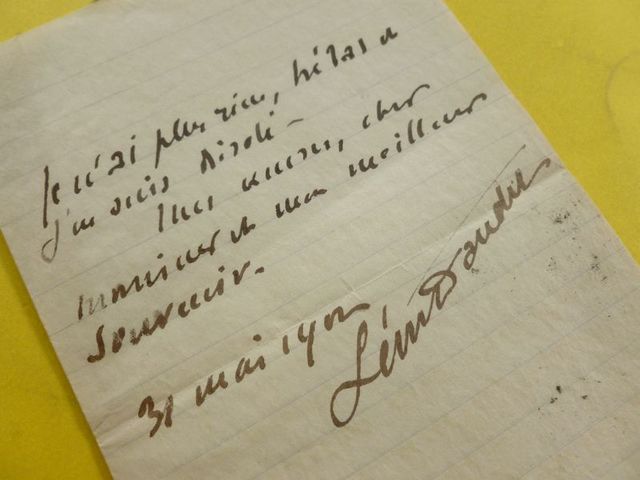 Je n'ai plus rien, hélas et
j'en suis désolé –
Mes excuses, cher
monsieur et mon meilleur
souvenir.
31 mai 1902
Léon Daudet